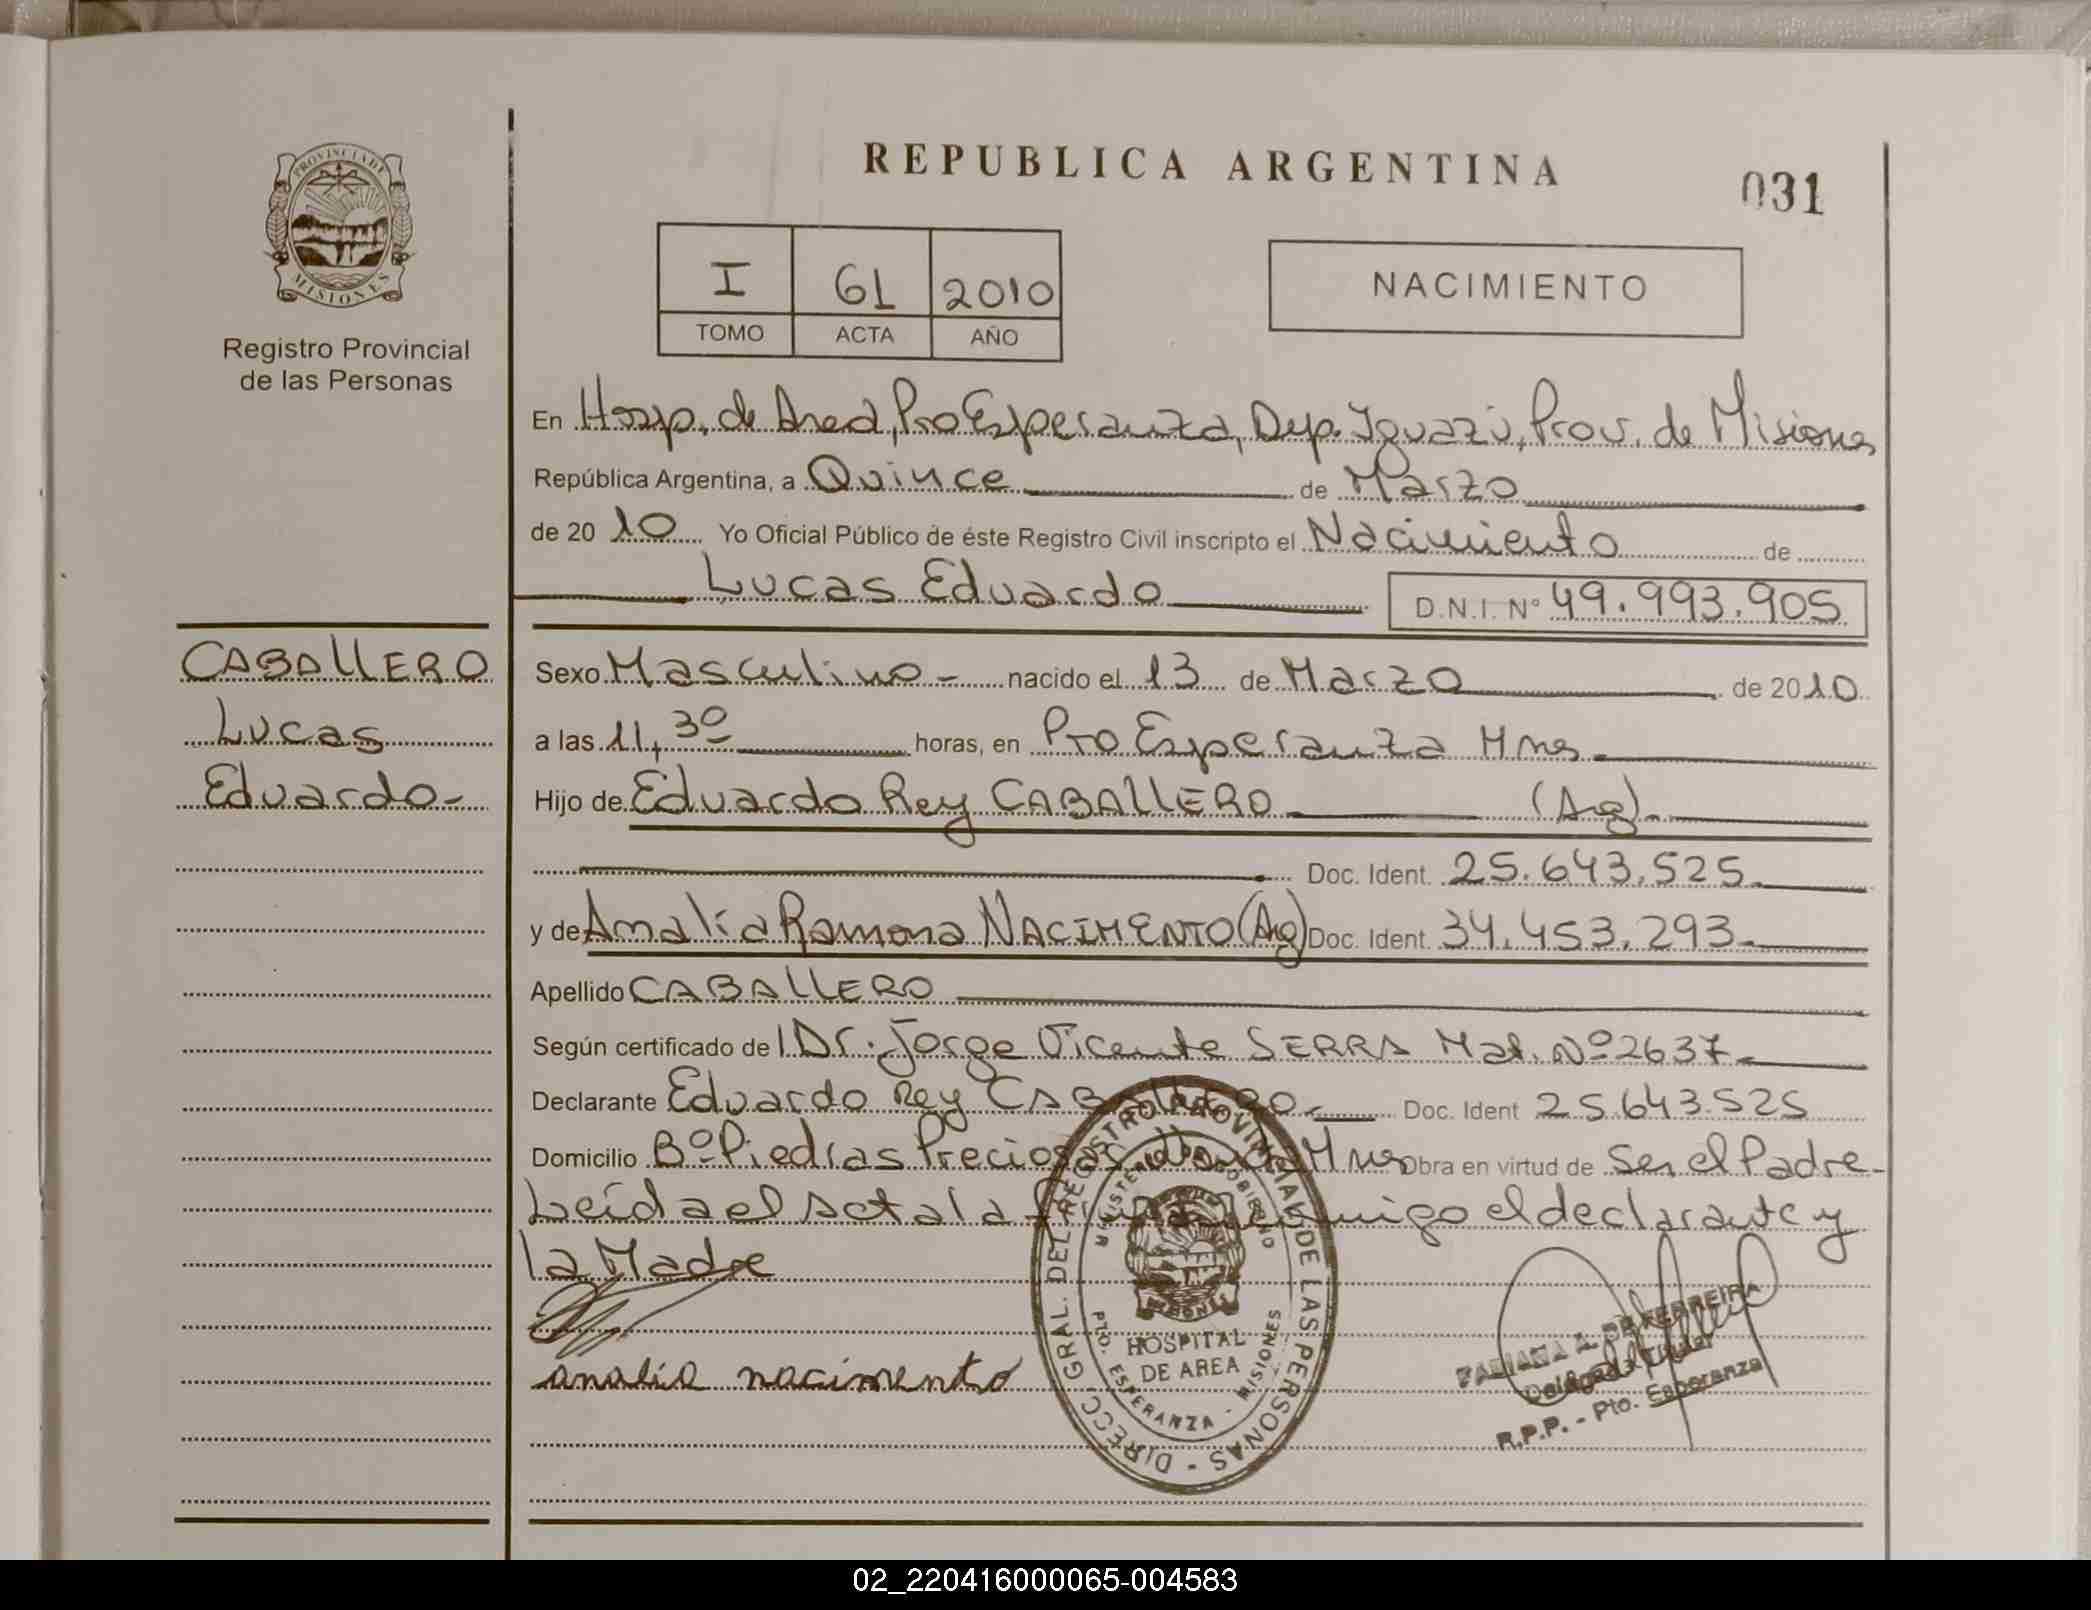 REPUBLICA ARGENTINA
031
PROVINCIA DE
MISIONES
Registro Provincial
de las Personas
I 61 2010
TOMO ACTA AÑO
NACIMIENTO
En Hosp. de Area, Pto Esperanza, Dep. Iguazú, Prov. de Misiones
República Argentina, a Quince de Marzo
de 2010 Yo Oficial Público de éste Registro Civil inscripto el Nacimiento de
Lucas Eduardo D.N.I. N° 49.993.905
CABALLERO
Lucas
Eduardo-
Sexo Masculino - nacido el 13 de Marzo de 2010
a las 11,30 horas, en Pto Esperanza Mnes
Hijo de Eduardo Rey CABALLERO (Arg).
Doc. Ident. 25.643.525
y de Amalia Ramona NACIMENTO (Arg) Doc. Ident. 34.453.293
Apellido CABALLERO
Según certificado de Dr. Jorge Vicente SERRA Mat. Nº 2637
Declarante Eduardo Rey CABALLERO Doc. Ident 25.643.525
Domicilio Bº Piedras Preciosas Mnes Obra en virtud de Ser el Padre-
Leída el acta la el declarante y
la Madre
analia nacimento
DIRECC. GRAL. DEL REGISTRO PROVINCIAL DE LAS PERSONAS -
MINISTERIO DE GOBIERNO
HOSPITAL
DE AREA
PTO. ESPERANZA - MISIONES
FABIANA A. DE FERREIRA
Delegada Titular
R.P.P. - Pto. Esperanza
02_220416000065-004583